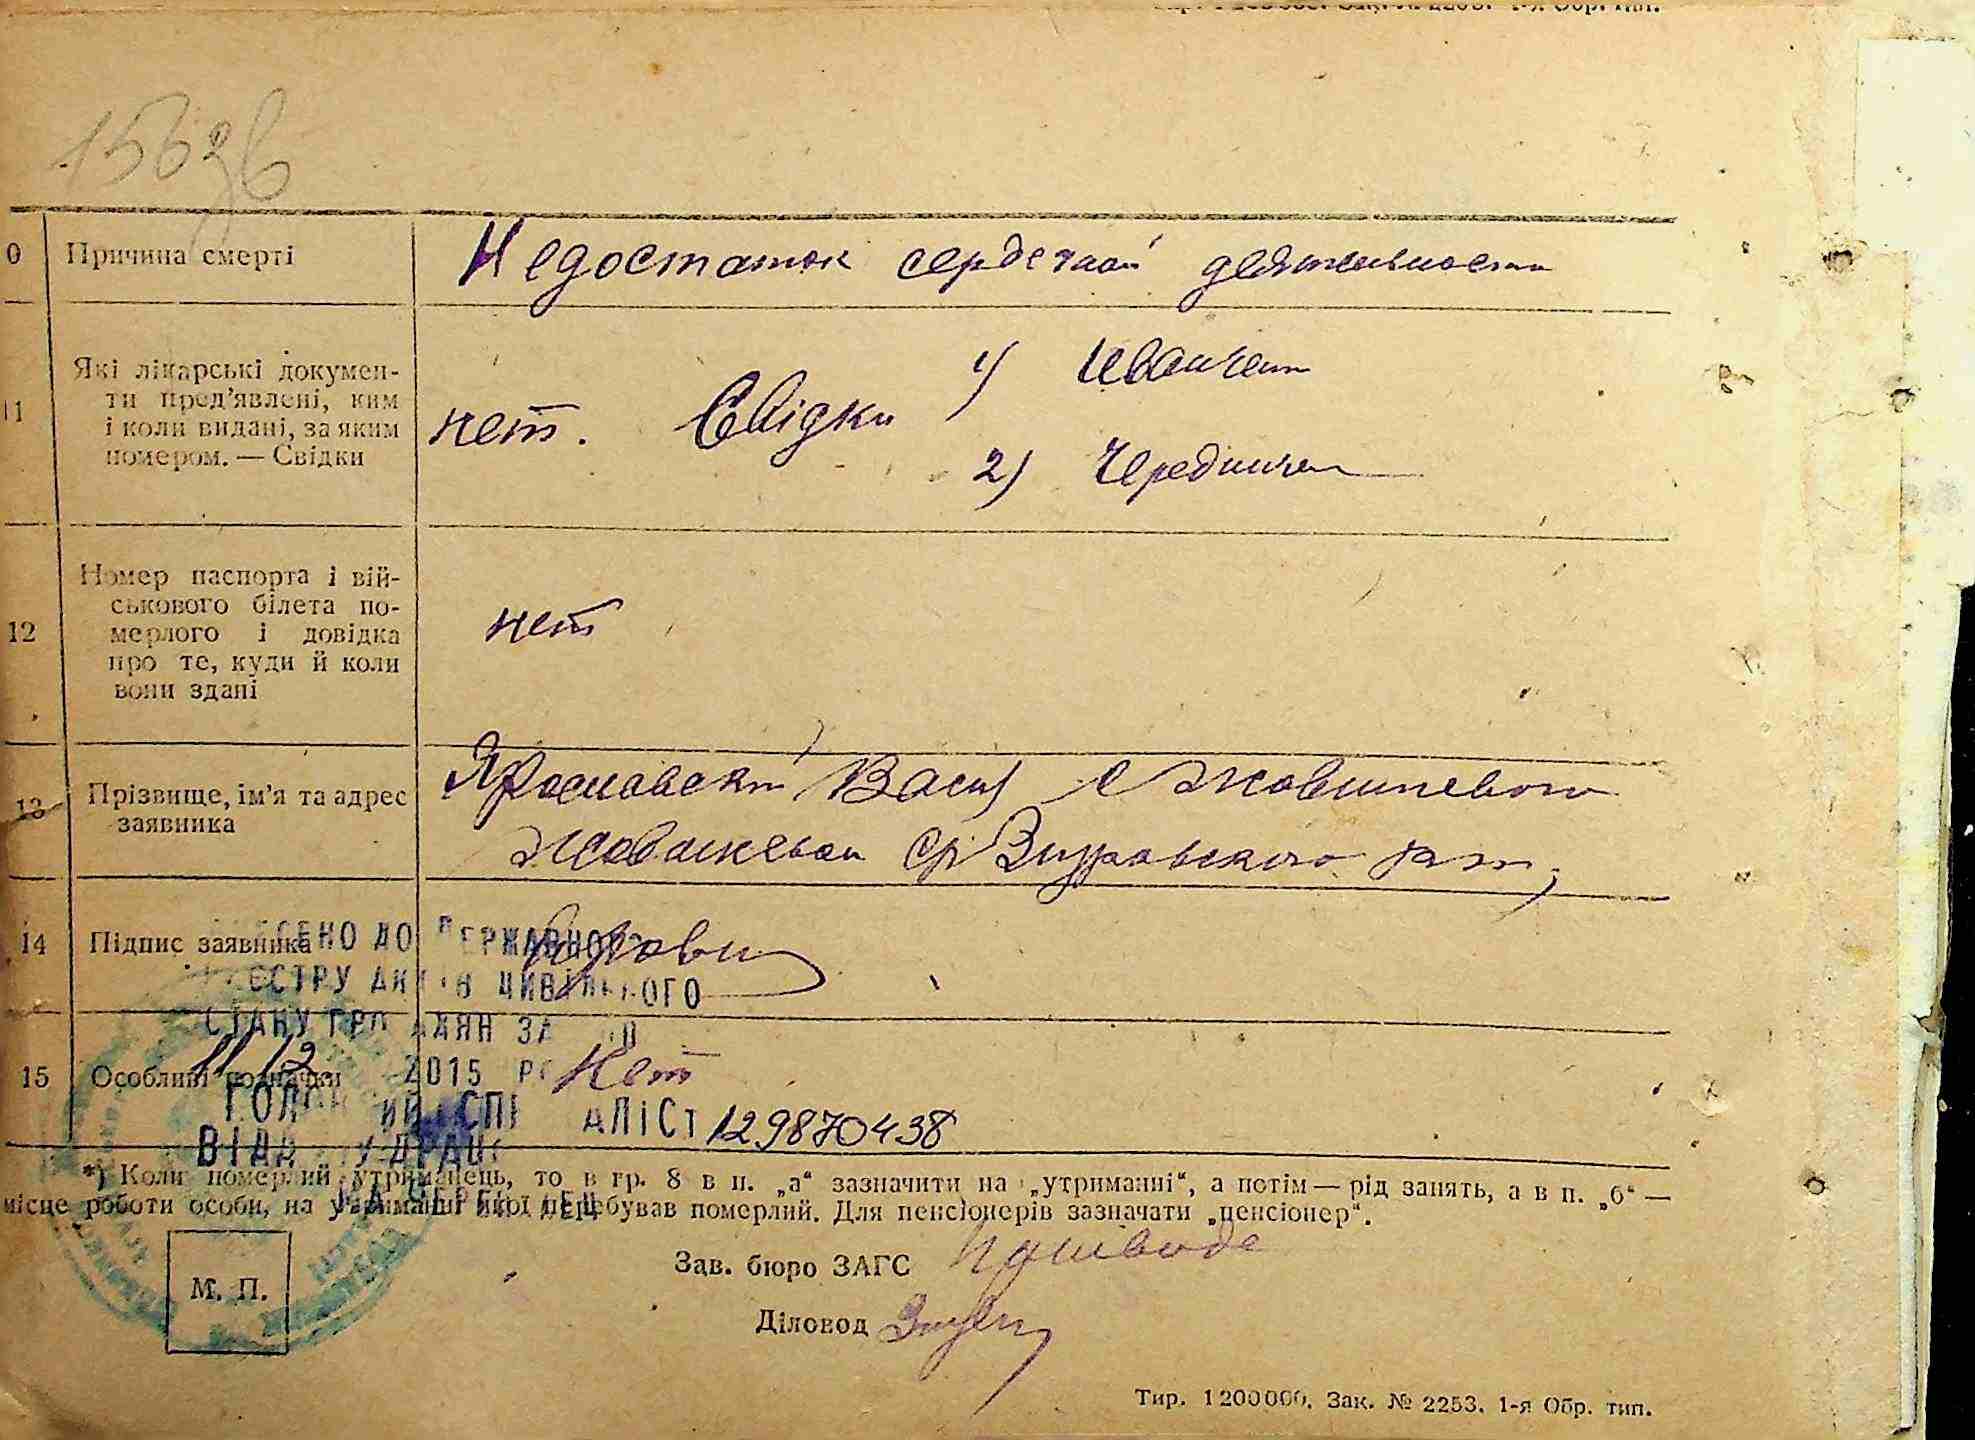 15636
0 Причина смерті Недостаток сердечной деятельности
11 Які лікарські докумен-
ти пред'явлені, ким
і коли видані, за яким
номером. — Свідки
нет. Свідки 1) Иванченко
2) Чередничен
12 Номер паспорта і вій-
ськового білета по-
мерлого і довідка
про те, куди й коли
вони здані
нет
13 Прізвище, ім'я та адрес
заявника
Ярославский Васил с
14 Підпис заявника
ДО ДЕРЖАВНОГО
РЕЄСТРУ АКТІВ ЦИВІЛЬНОГО
СТАНУ ГРОМАДЯН ЗА
11 12 2015
15 Особливі позначки Нет
ГОЛОВНИЙ СПЕЦІАЛІСТ 129870438
ВІДДІЛУ ДРАЦС
*) Коли померлий утриманець, то в гр. 8 в п. „а“ зазначити на „утриманні“, а потім — рід занять, а в п. „б“ —
місце роботи особи, на утриманні якої перебував померлий. Для пенсіонерів зазначати „пенсіонер“.
М. П.
Зав. бюро ЗАГС
Діловод
Тир. 1200000. Зак. № 2253. 1-я Обр. тип.